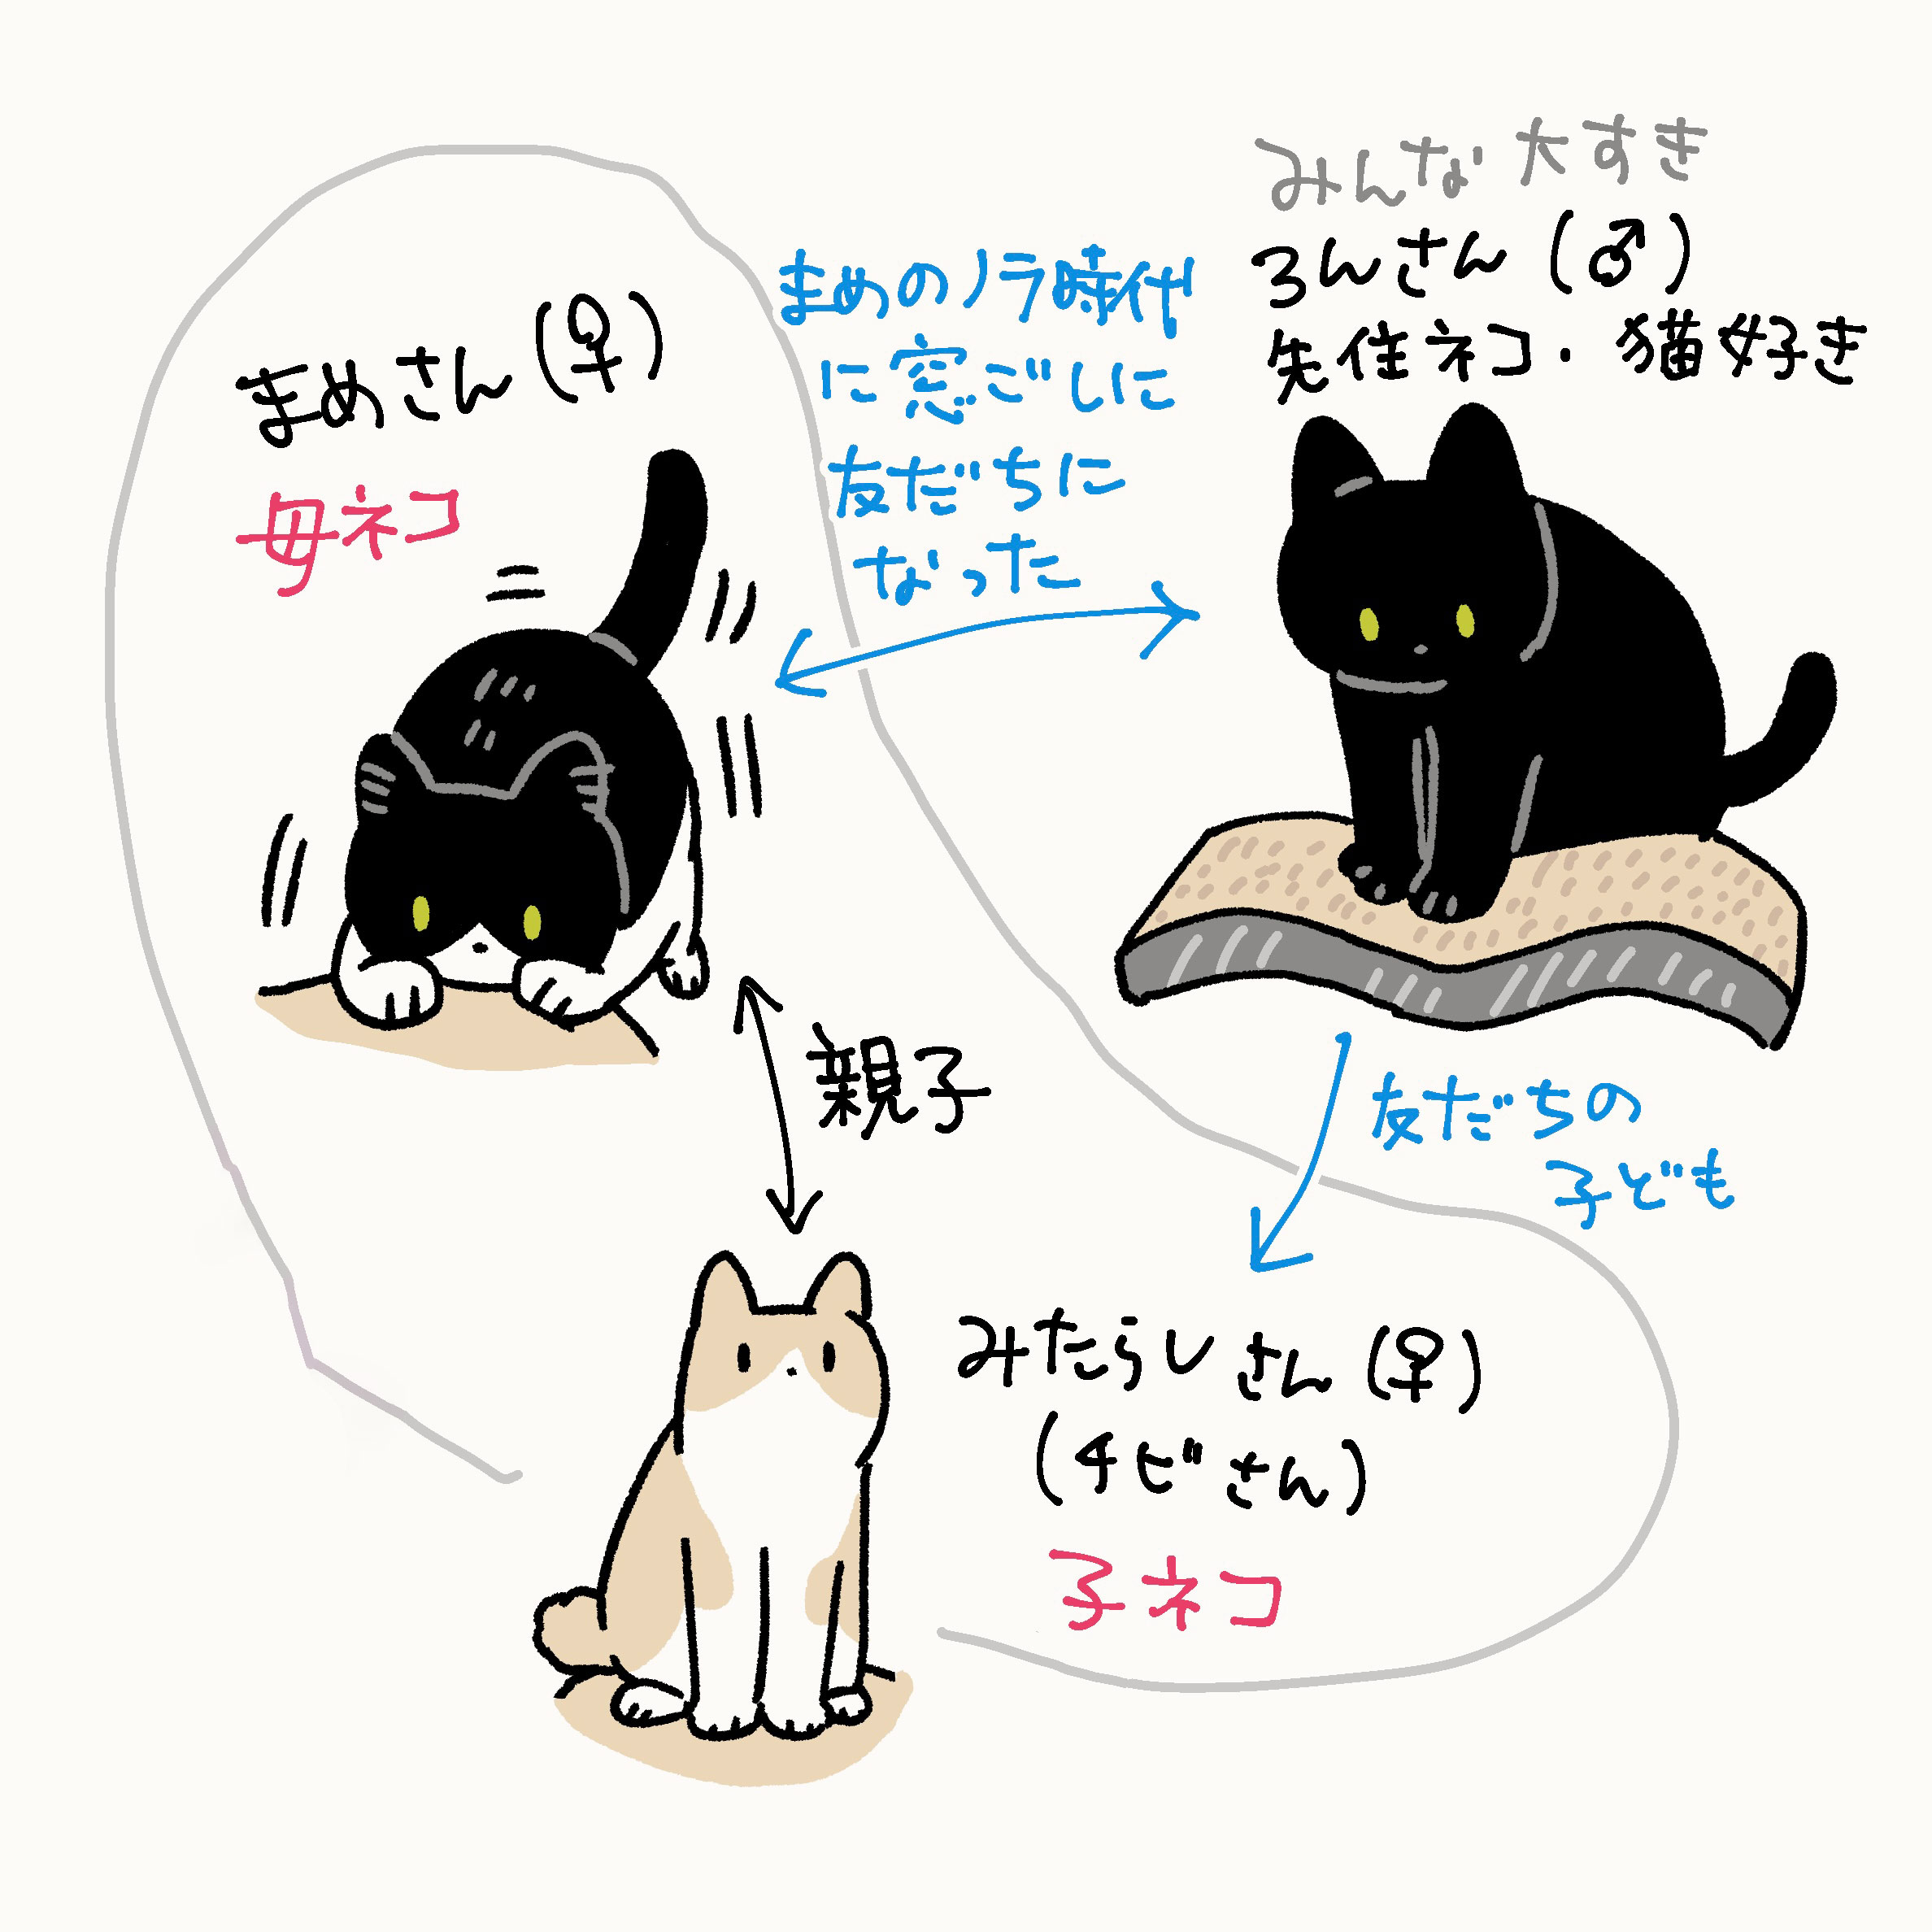 まめさん(♀)
母ネコ
まめのノラ時代
に窓ごしに
友だちに
なった
みんな大すき
ろんさん(♂)
先住ネコ・猫好き
親子
友だちの
子ども
みたらしさん(♀)
(チビさん)
子ネコ